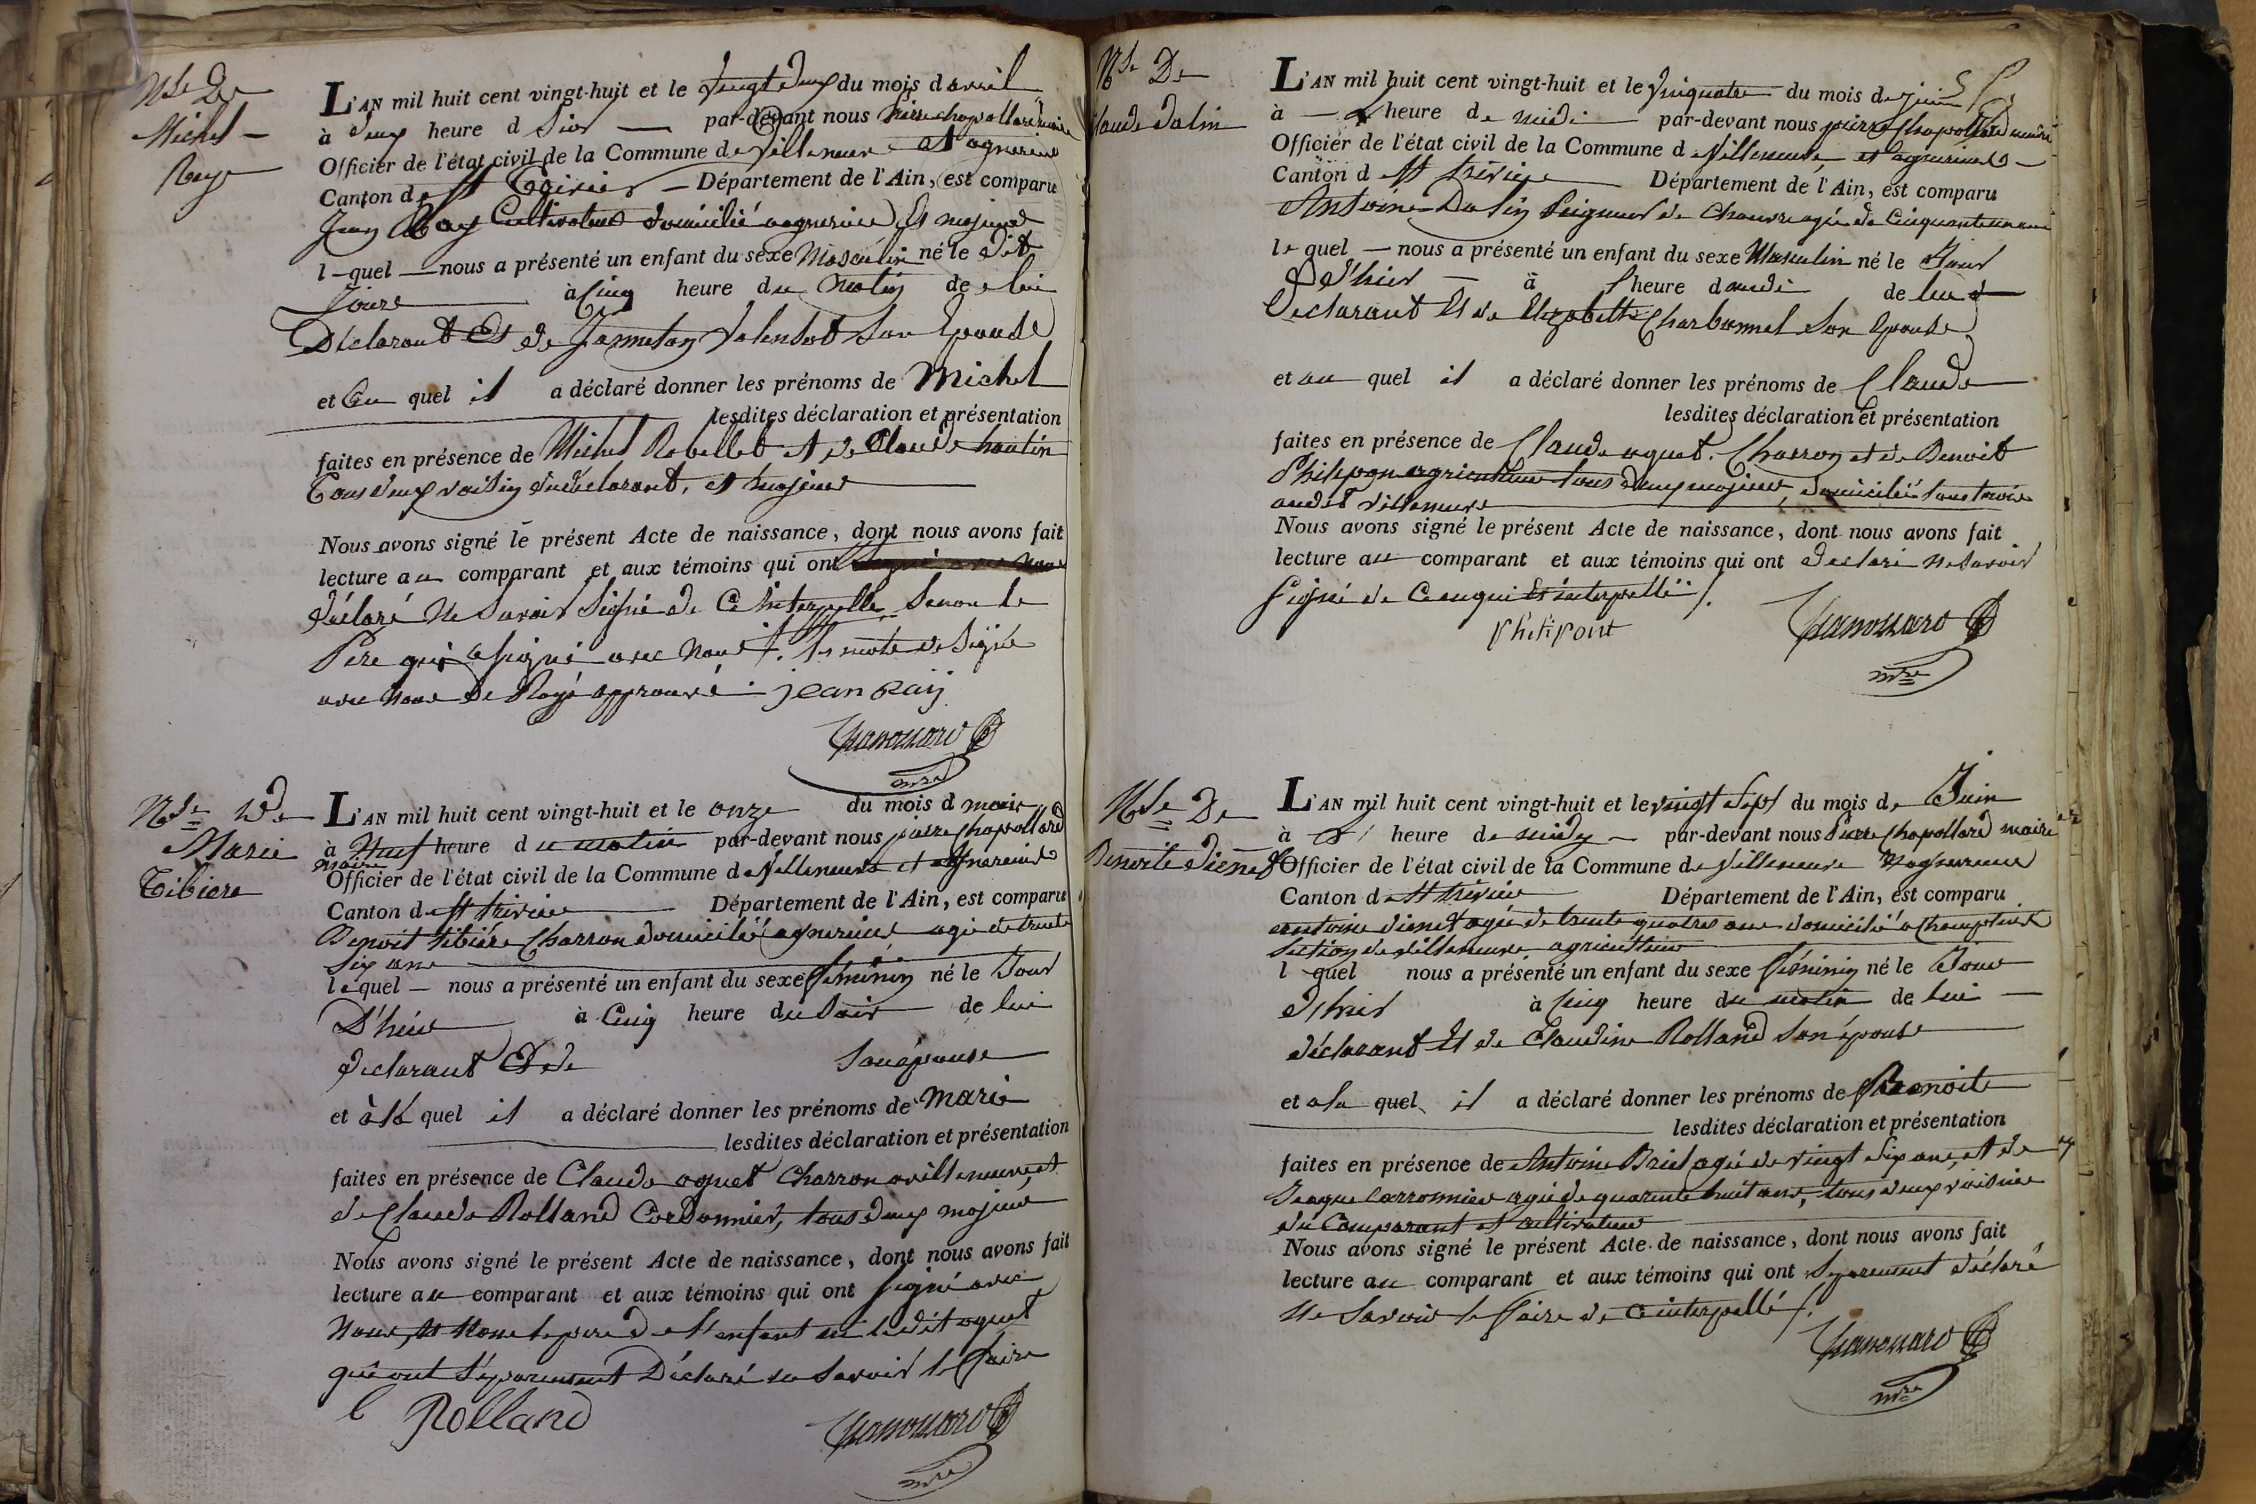 Nce De
Michel
Ray
L'AN mil huit cent vingt-huit et le vingt deux du mois d'avril
à deux heure d soir par-devant nous pierre chapollard maire
Officier de l'état civil de la Commune de villeneuve et agnereins
Canton de St Trivier Département de l'Ain, est comparu
Jean Ray Cultivateur domicilié agnerins Et majeur
lequel nous a présenté un enfant du sexe Masculin né le dit
Jour à Cinq heure du Matin de lui
Déclarant Et de son Epouse
et au quel il a déclaré donner les prénoms de Michel
lesdites déclaration et présentation
faites en présence de Michel Robellet et de Claude
Tous deux voisin du déclarant, et majeur
Nous avons signé le présent Acte de naissance, dont nous avons fait
lecture au comparant et aux témoins qui ont
déclaré Ne Savoir Signé de Ce interpellé Sauf le
Père qui a signé avec Nous. Les mots de Signé
avec nous De Rayé approuvé. jean Raij
mre
Nce De
Marie
Tibiere
L'AN mil huit cent vingt-huit et le onze du mois d mai
à Neuf heure du matin par-devant nous pierre chapollard
maire
Officier de l'état civil de la Commune de villeneuve et agnereins
Canton de St trivier Département de l'Ain, est comparu
Benoit tibiére Charron domicilié agnerins agé de trente
Six ans
lequel nous a présenté un enfant du sexe féminin né le Jour
D'hier à Cinq heure du Soir de lui
declarant Et de Son épouse
et à la quel il a déclaré donner les prénoms de Marie
lesdites déclaration et présentation
faites en présence de Claude aguet Charron a villeneuve et
de Claude Rolland Cordonnier, tous deux majeur
Nous avons signé le présent Acte de naissance, dont nous avons fait
lecture au comparant et aux témoins qui ont signé avec
Nous, Et Non le pere de l'enfant ni ledit aguet
qui ont Séparement Déclaré ne Savoir le faire
C Rolland
mre
Nce De
Claude dalin
L'AN mil huit cent vingt-huit et le Vinquatre du mois de juin
à heure de midi par-devant nous pierre Chapollard maire
Officier de l'état civil de la Commune de villeneuve et agnerins
Canton d St trivier Département de l'Ain, est comparu
Antoine Dalin Peigneur de Chanvre agé de Cinquante un ans
lequel nous a présenté un enfant du sexe Masculin né le Jour
D'hier à heure de de lui
Declarant Et de Elizabette Charbonnel Son Epouse
et au quel il a déclaré donner les prénoms de Claude
lesdites déclaration et présentation
faites en présence de Claude aguet. Charron et de Benoit
Philipon agriculteur tous deux majeur, domicilié tous trois
audit villeneuve
Nous avons signé le présent Acte de naissance, dont nous avons fait
lecture au comparant et aux témoins qui ont declaré Ne Savoir
signé de Ce enqui Et interpellé
Phelipont
mre
Nce De
Benoite dienet
L'AN mil huit cent vingt-huit et le vingt Sept du mois de Juin
à heure de midy par-devant nous Pierre Chapollard maire
Officier de l'état civil de la Commune de villeneuve agnereins
Canton d St trivier Département de l'Ain, est comparu
antoine dienet agé de trente quatre ans domicilié a
Section de villeneuve agriculteur
l quel nous a présenté un enfant du sexe féminin né le Jour
d'hier à Cinq heure du matin de lui
déclarant Et de Claudine Rolland Son épouse
et a la quel il a déclaré donner les prénoms de Benoite
lesdites déclaration et présentation
faites en présence de Antoine Briel agé de vingt Six ans, et de
Jeaque Carronnier agé de quarente huit ans, tous deux voisins
du Comparant et Cultivateur
Nous avons signé le présent Acte de naissance, dont nous avons fait
lecture au comparant et aux témoins qui ont Séparement déclaré
Ne Savoir le faire de ce interpellé
mre